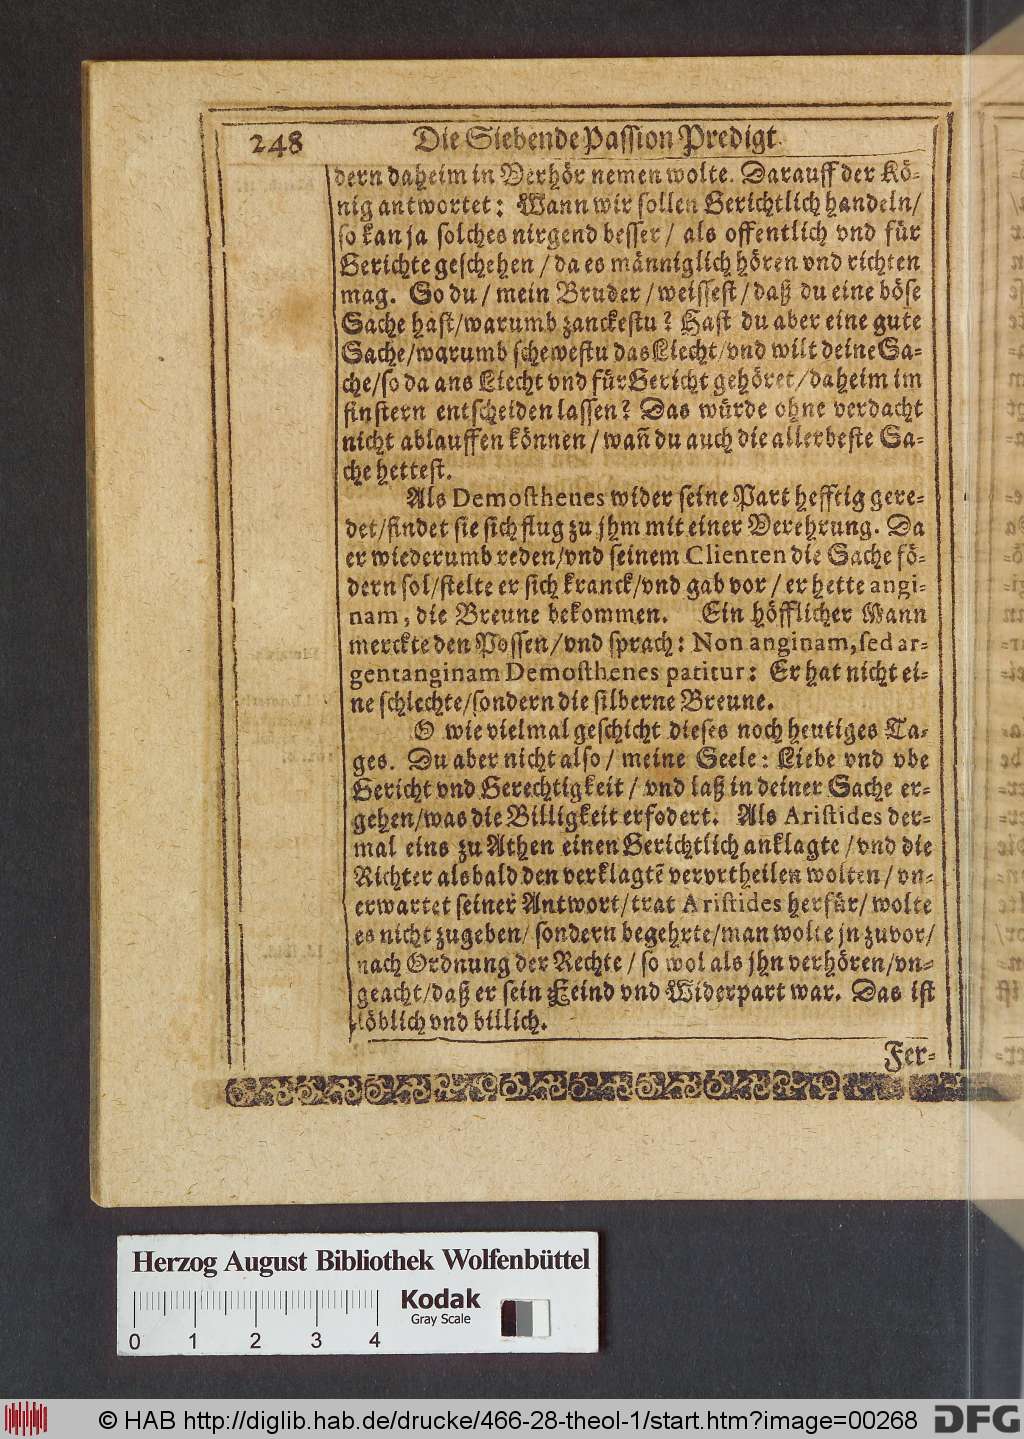 248 Die Siebende Passion Predigt.
dern daheim in Verhör nemen wolte. Darauff der Kö-
nig antwortet: Wann wir sollen Gerichtlich handeln/
so kan ja solches nirgend besser/ als offentlich vnd für
Gerichte geschehen/ da es männiglich hören vnd richten
mag. So du/ mein Bruder/ weissest/ daß du eine böse
Sache hast/ warumb zanckestu? Hast du aber eine gute
Sache/ warumb schewestu das Liecht/ vnd wilt deine Sa-
che/ so da ans Liecht vnd für Gericht gehöret/ daheim im
finstern entscheiden lassen? Das würde ohne verdacht
nicht ablauffen können/ wañ du auch die allerbeste Sa-
che hettest.
Als Demosthenes wider seine Part hefftig gere-
det/ findet sie sich flug zu jhm mit einer Verehrung. Da
er wiederumb reden/ vnd seinem Clienten die Sache fö-
dern sol/ stelte er sich kranck/ vnd gab vor/ er hette angi-
nam, die Breune bekommen. Ein höfflicher Mann
merckte den Possen/ vnd sprach: Non anginam, sed ar-
gentanginam Demosthenes patitur: Er hat nicht ei-
ne schlechte/ sondern die silberne Breune.
O wie vielmal geschicht dieses noch heutiges Ta-
ges. Du aber nicht also/ meine Seele: Liebe vnd vbe
Gericht vnd Gerechtigkeit/ vnd laß in deiner Sache er-
gehen/ was die Billigkeit erfodert. Als Aristides der-
mal eins zu Athen einen Gerichtlich anklagte/ vnd die
Richter alsbald den verklagtē vervrtheilen wolten/ vn-
erwartet seiner Antwort/ trat Aristides herfür/ wolte
es nicht zugeben/ sondern begehrte/ man wolte jn zuvor/
nach Ordnung der Rechte/ so wol als jhn verhören/ vn-
geacht/ daß er sein Feind vnd Widerpart war. Das ist
löblich vnd billich.
Fer-
Herzog August Bibliothek Wolfenbüttel
Kodak
Gray Scale
0 1 2 3 4
© HAB http://diglib.hab.de/drucke/466-28-theol-1/start.htm?image=00268
DFG